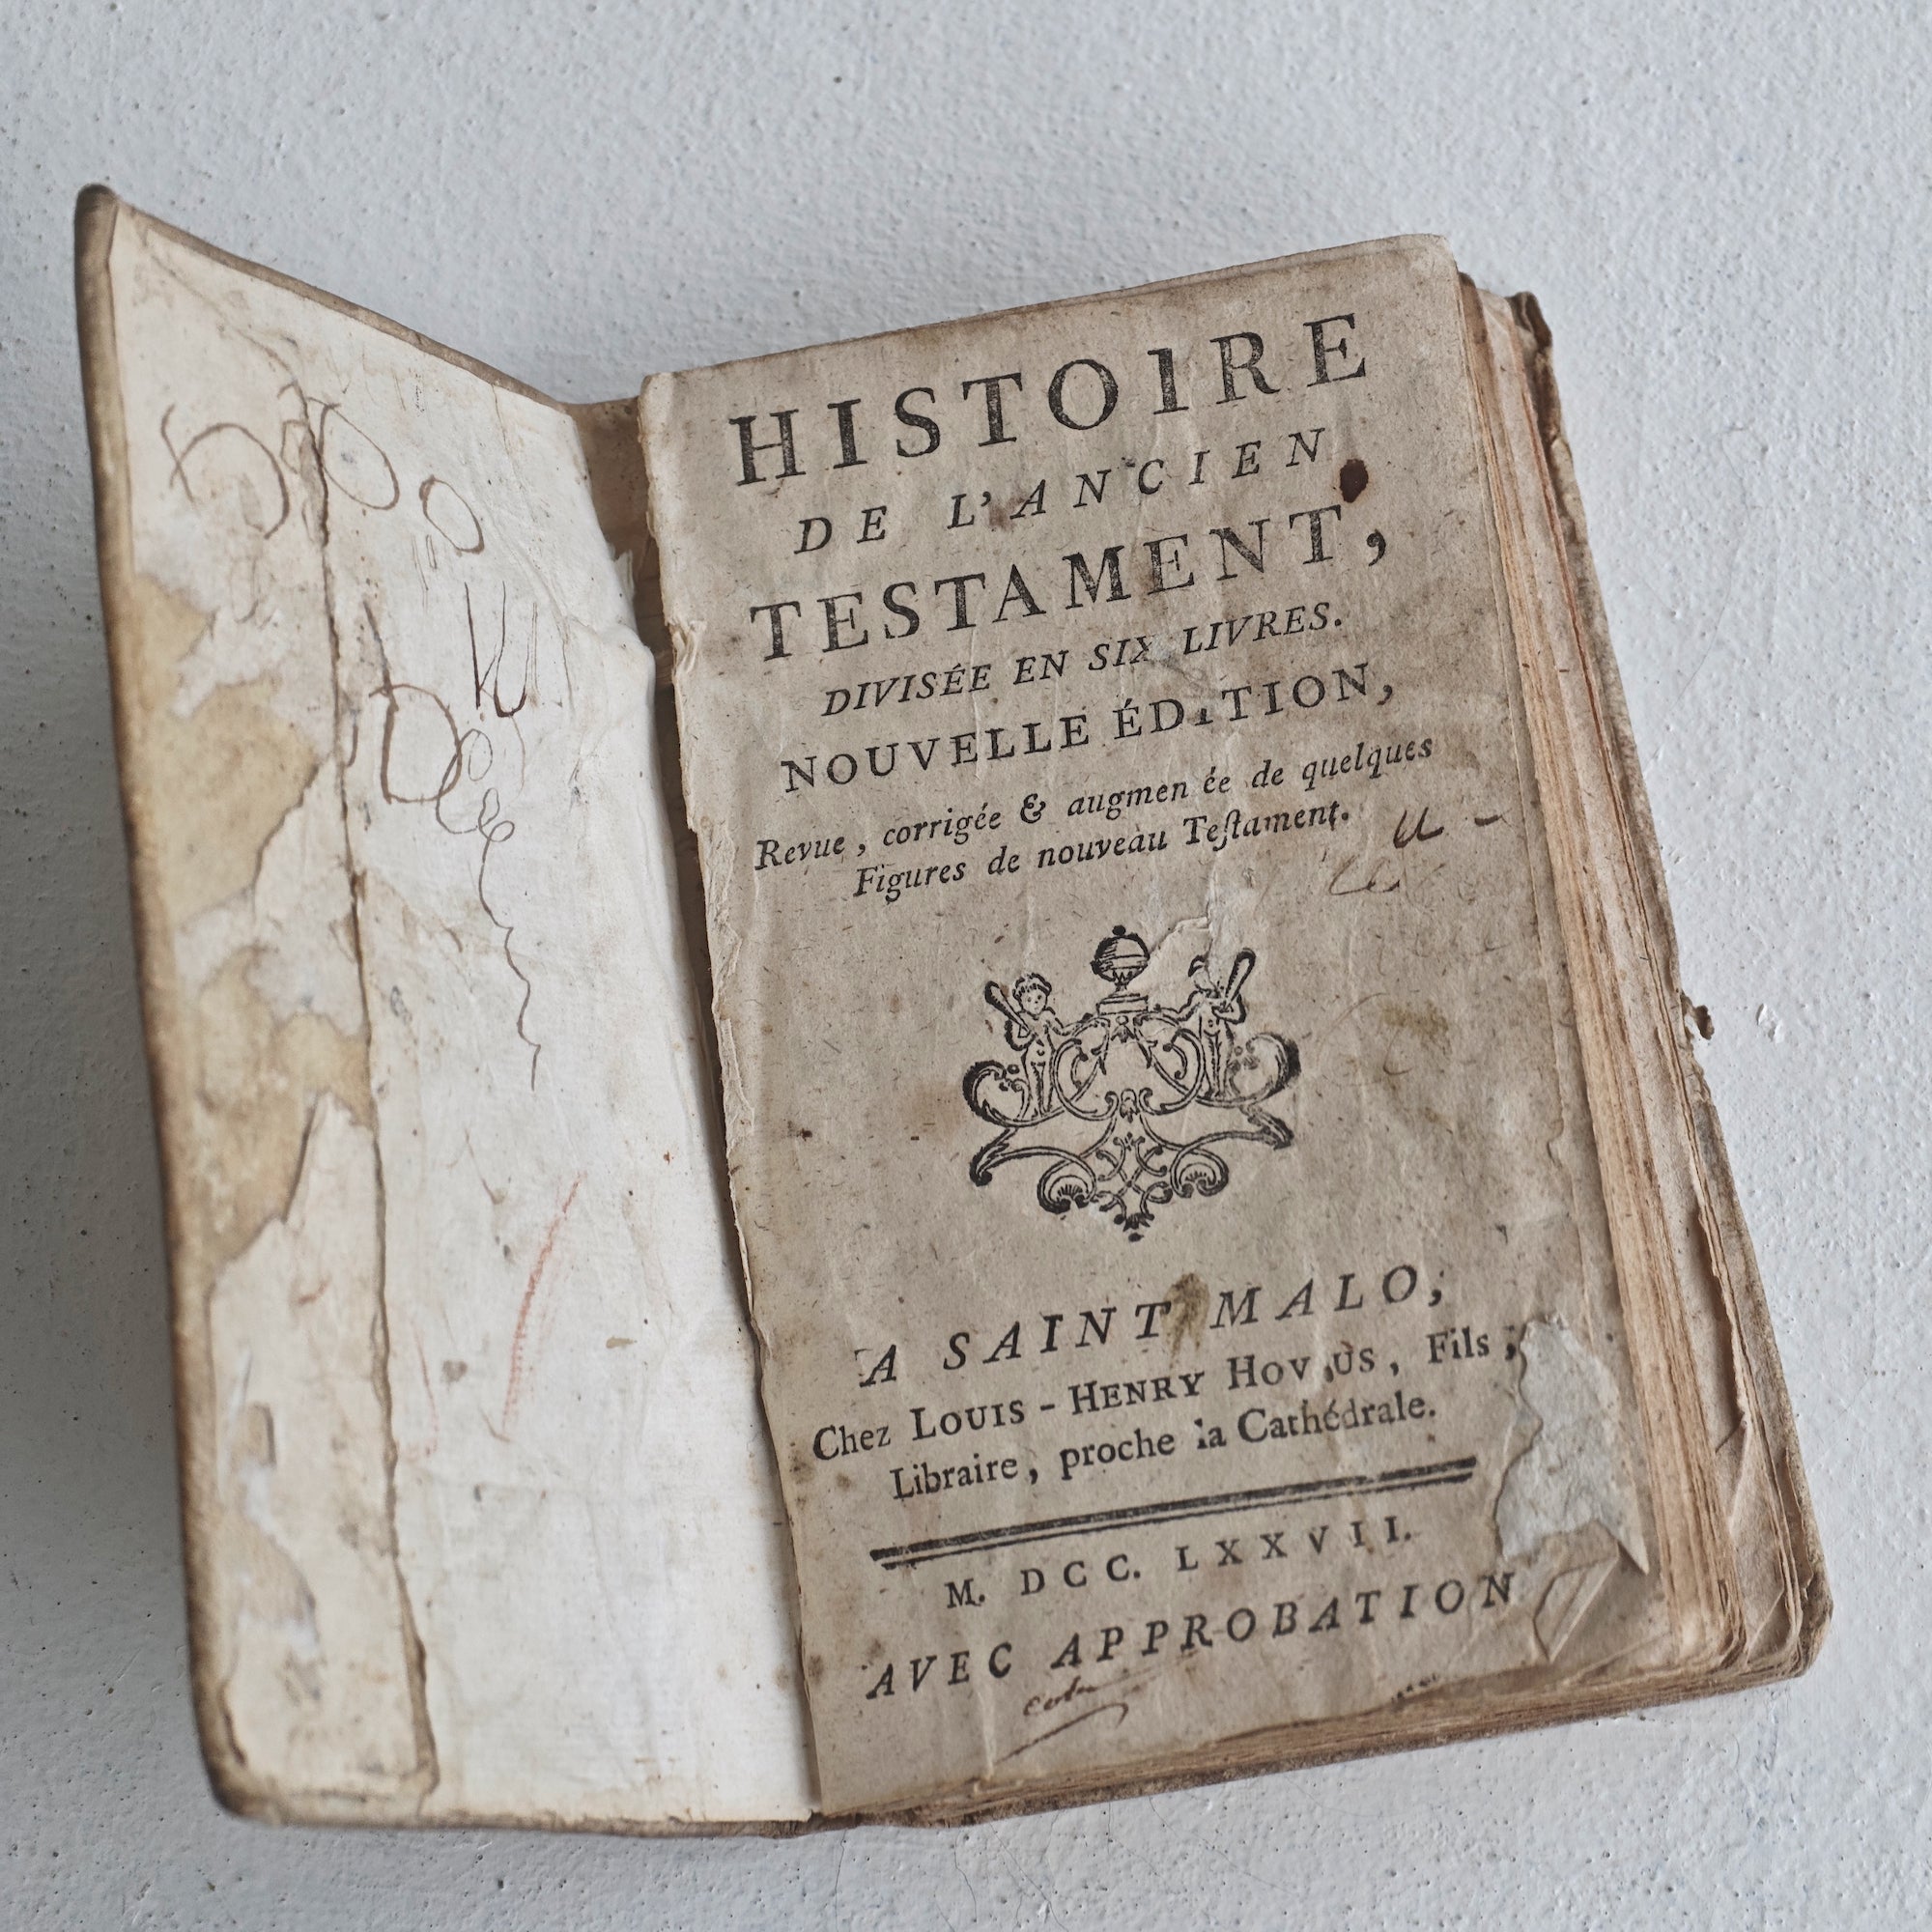 HISTOIRE
DE L'ANCIEN
TESTAMENT,
DIVISÉE EN SIX LIVRES.
NOUVELLE ÉDITION,
Revue, corrigée & augmen ée de quelques
Figures de nouveau Teſtament.
A SAINT MALO,
Chez LOUIS-HENRY HOV US, Fils,
Libraire, proche la Cathédrale.
M. DCC. LXXVII.
AVEC APPROBATION